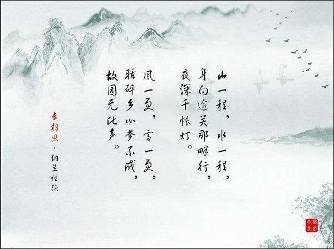 山一程，水一程。
身向榆关那畔行。
夜深千帐灯。
风一更，雪一更。
聒碎乡心梦不成。
故园无此声。
长相思·纳兰性德